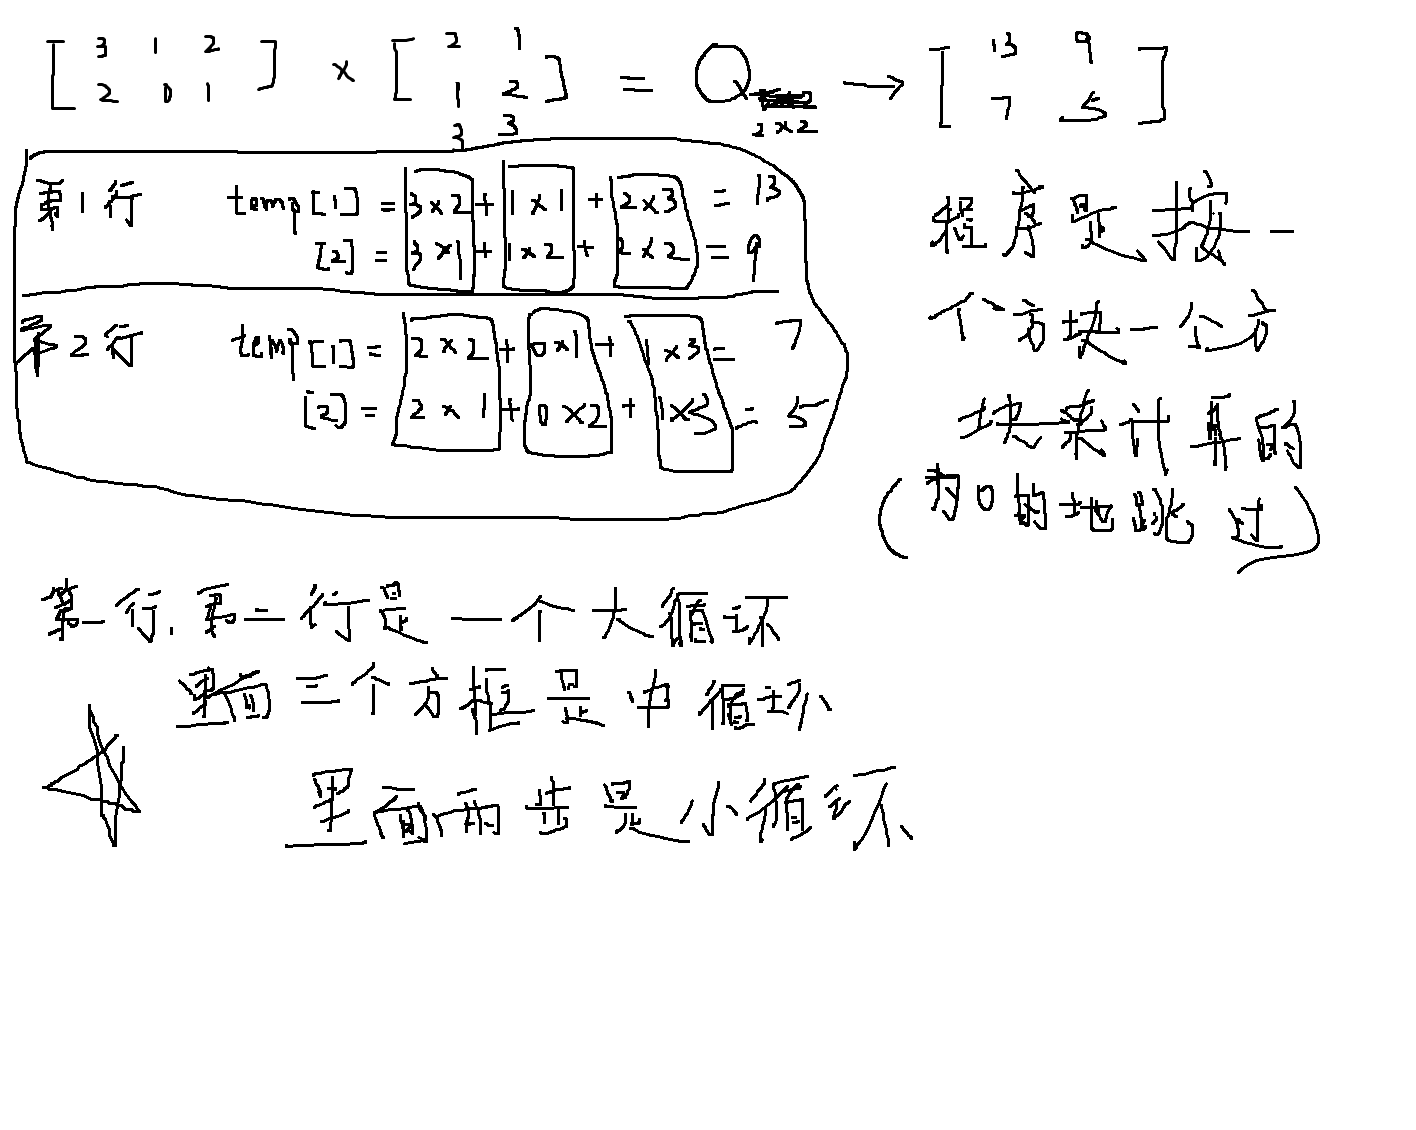 [ 3 1 2 ] × [ 2 1 ] = Q → [ 13 9 ]
2 0 1 1 2 2×2 7 5
3 3
第1行 temp[1] = 3×2 + 1×1 + 2×3 = 13
[2] = 3×1 + 1×2 + 2×2 = 9
第2行 temp[1] = 2×2 + 0×1 + 1×3 = 7
[2] = 2×1 + 0×2 + 1×3 = 5
程序是按一
个方块一个方
块来计算的
(为0的地跳过)
第一行.第二行是一个大循环
里面三个方框是中循环
里面两步是小循环